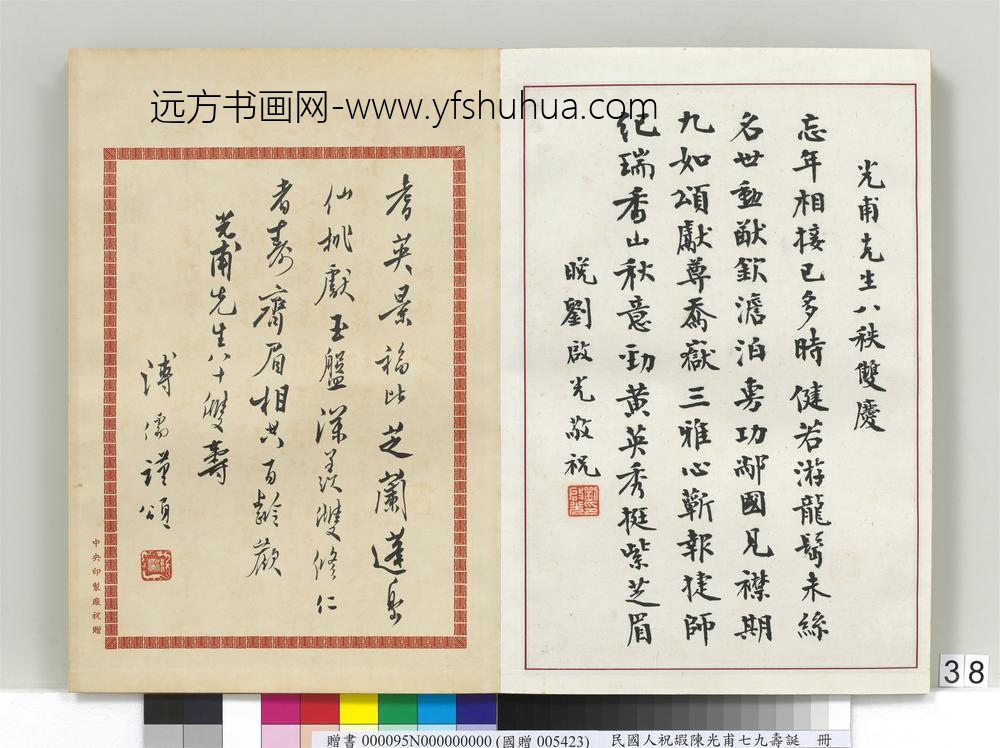 远方书画网-www.yfshuhua.com
光甫先生八秩雙慶
忘年相接已多時健若游龍鬢未絲
名世勳猷欽澹泊專功鄰國見襟期
九如頌獻尊喬嶽三雅心蘄報捷師
紀瑞香山秋意勁黃英秀挺紫芝眉
晚劉啟光敬祝
耆英景福比芝蘭蓬島
仙桃獻玉盤深羨雙修仁
者壽齊眉相共百齡歡
光甫先生八十雙壽
溥儒謹頌
中央印製廠祝贈
38
贈書 000095N000000000 (國贈 005423)
民國人祝嘏陳光甫七九壽誕 冊